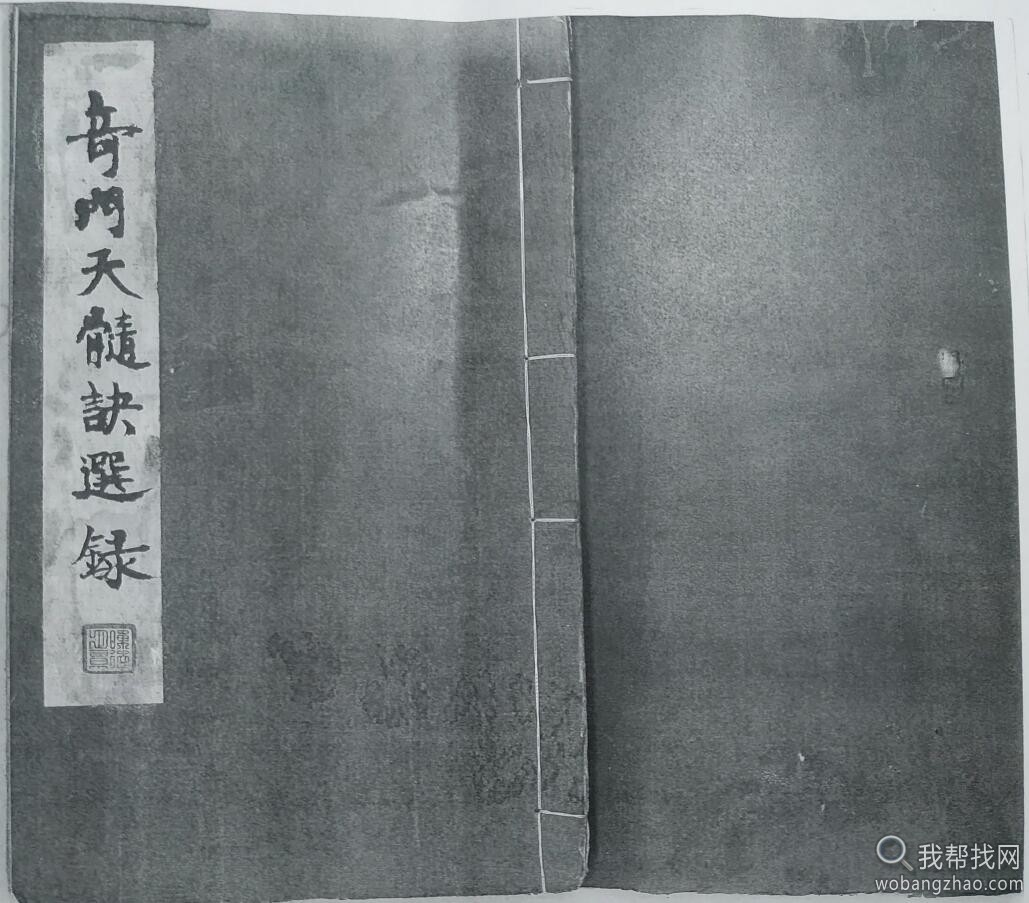 奇門天髓訣選錄
我帮找网
wobangzhao.com